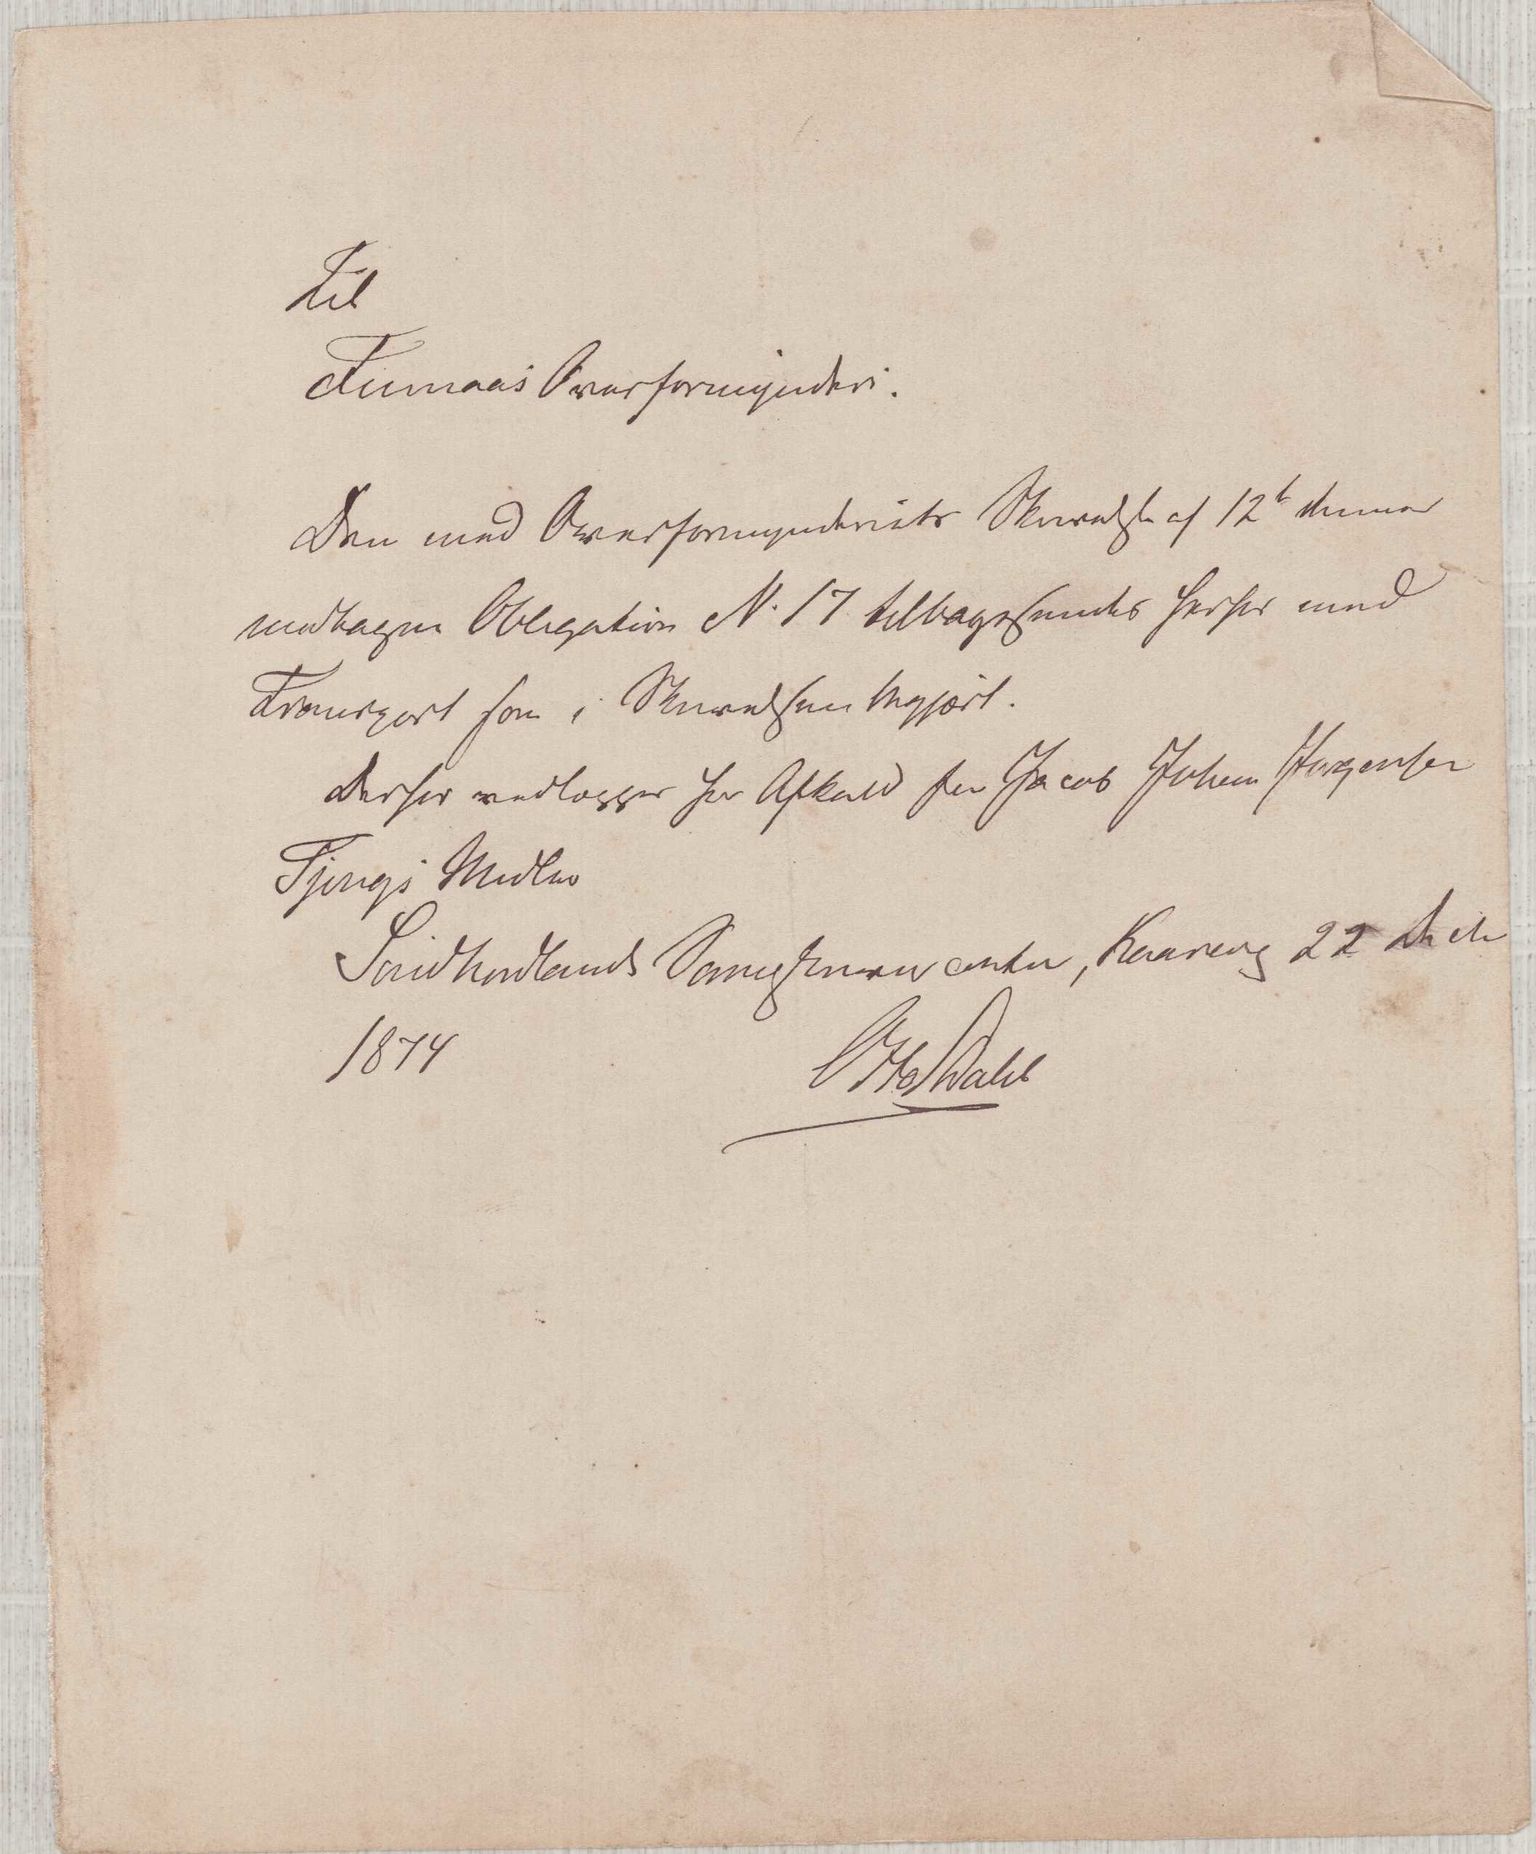 Til
Finnaas Overformynderi.
Den med Overformynderiets Skrivelse af 12te dennes
modtagne Obligation N. 17 tilbagesendes herfor med
Transport som i Skrivelsen begjært.
Derhos vedlægges her Afkald for Jacob Johan Jørgensen
Midler
Søndhordlands Sorenskrivercontor, 22
1874 Otto Dahl